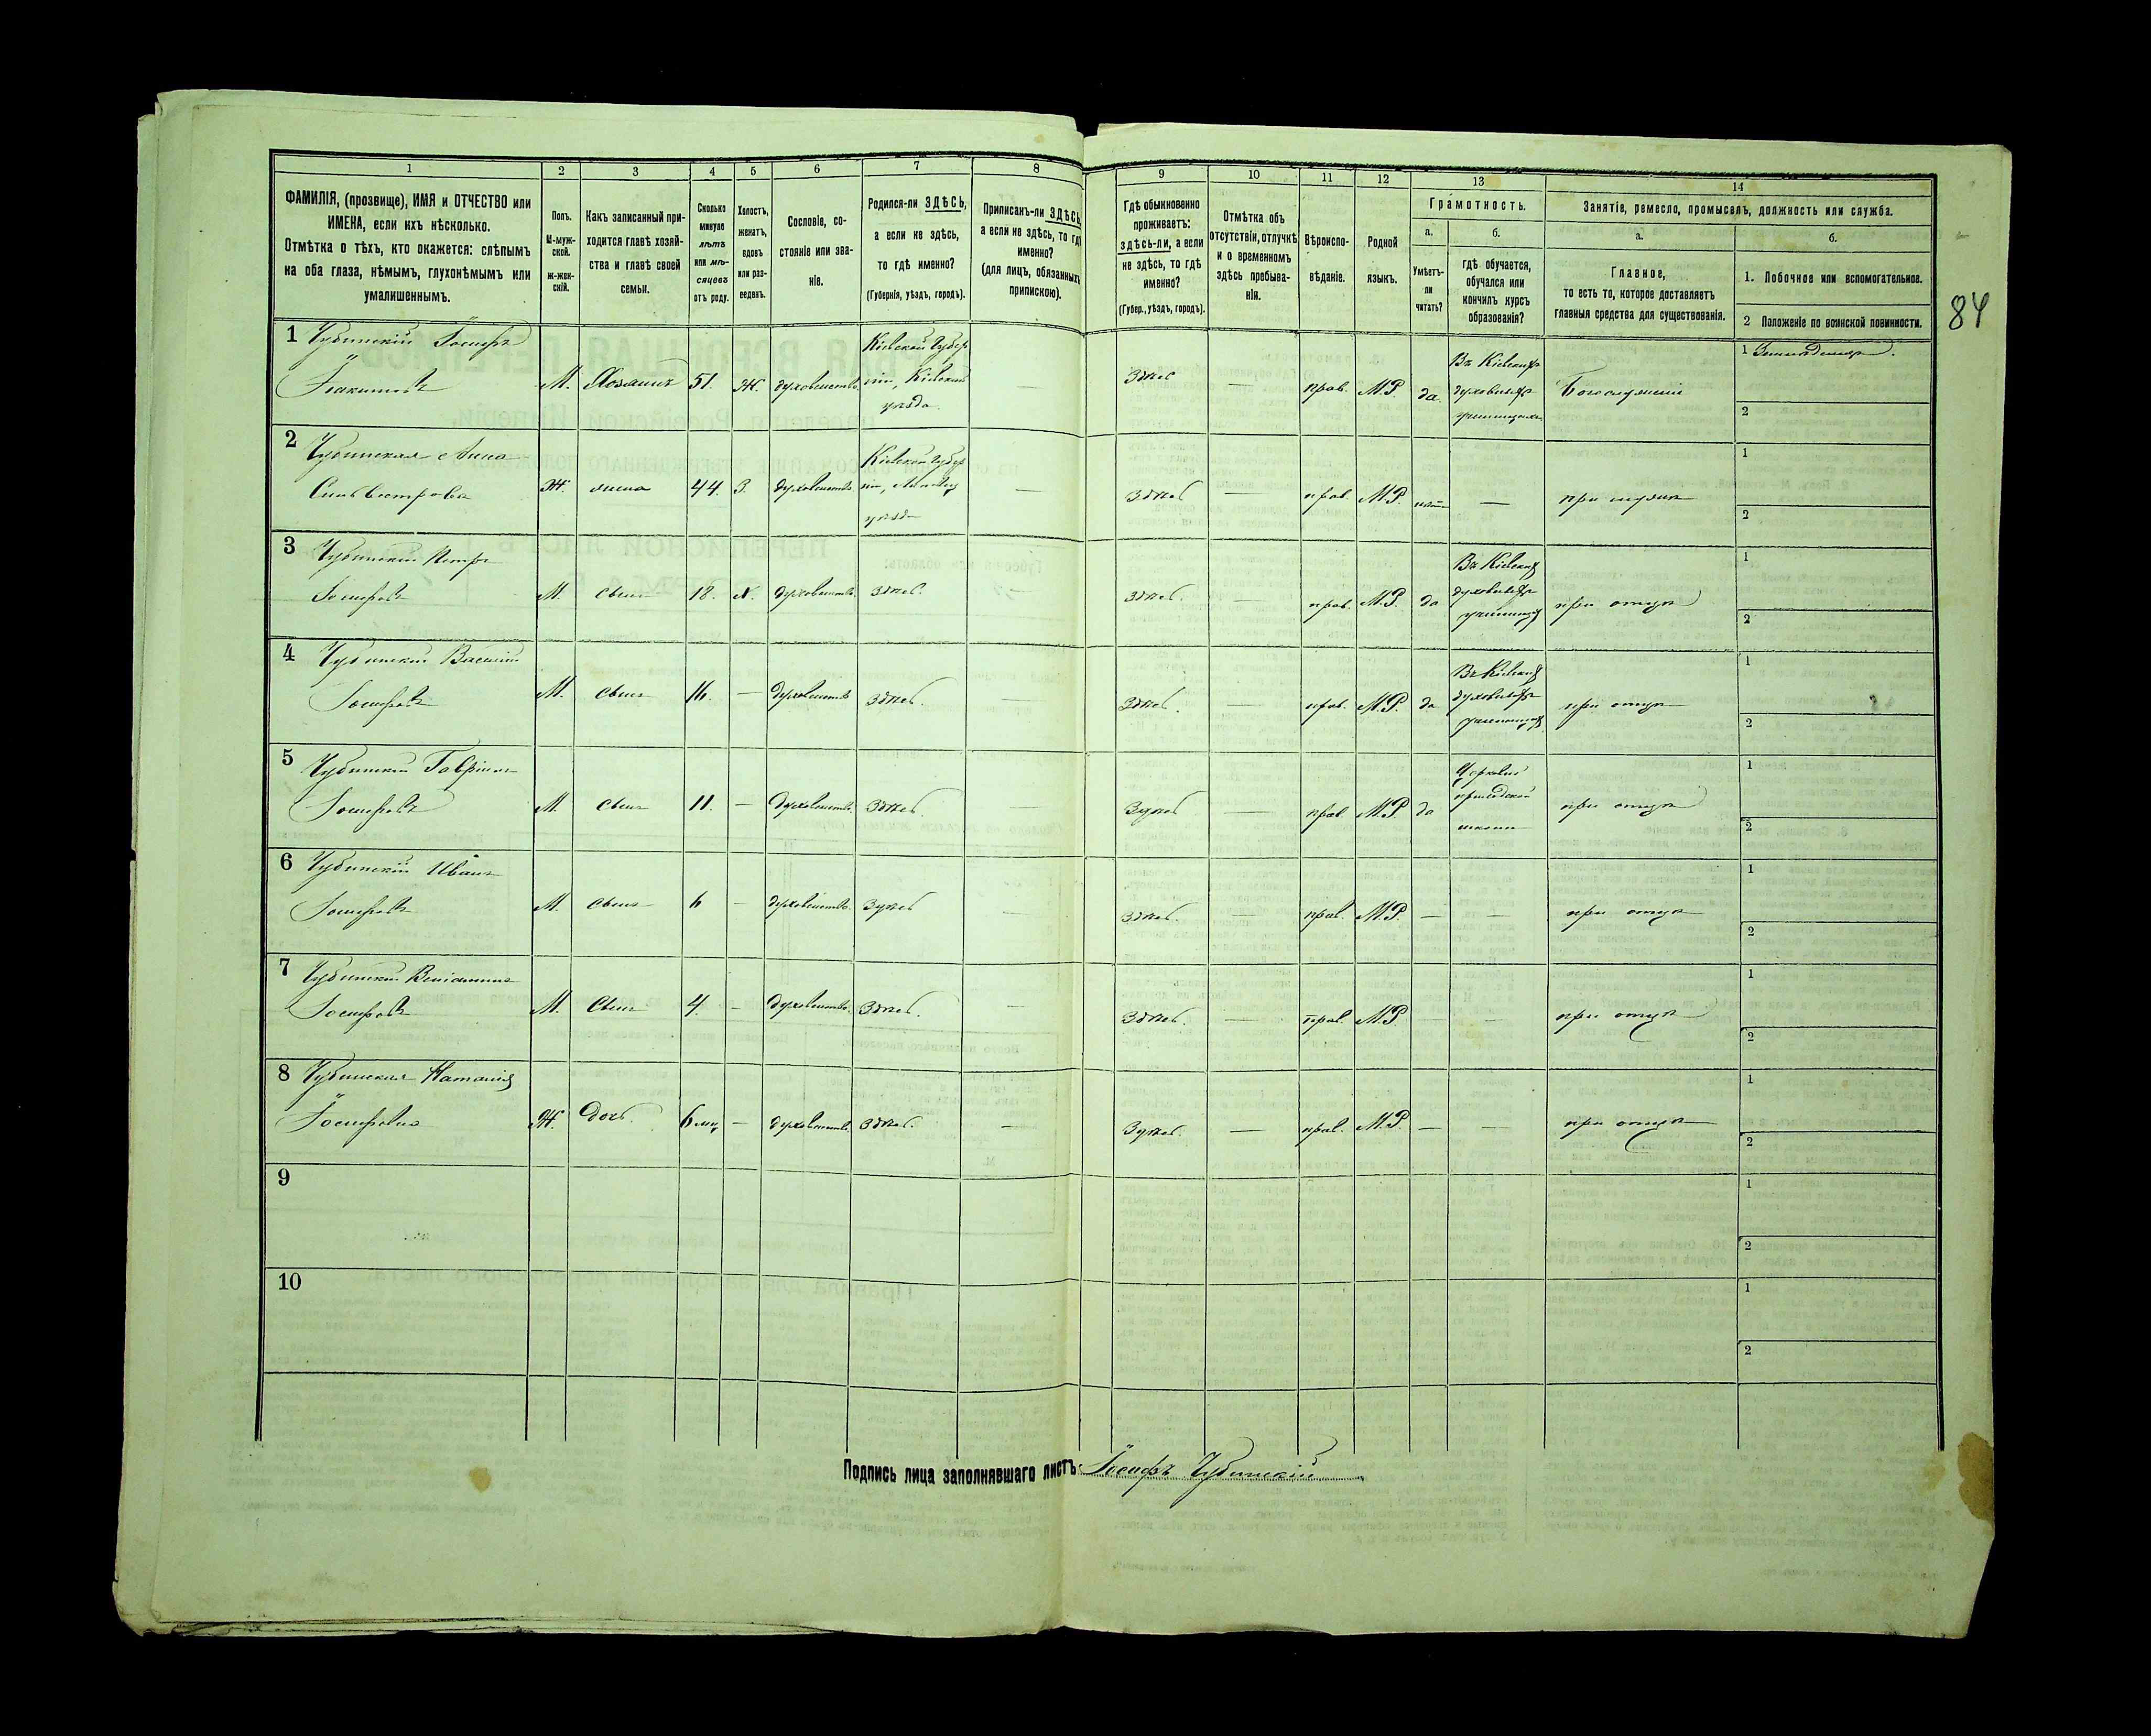 1 2 3 4 5 6 7 8 9 10 11 12 13 14
ФАМИЛІЯ, (прозвище), ИМЯ и ОТЧЕСТВО или
ИМЕНА, если ихъ нѣсколько.
Отмѣтка о тѣхъ, кто окажется: слѣпымъ
на оба глаза, нѣмымъ, глухонѣмымъ или
умалишеннымъ.
Полъ.
М-муж-
ской.
ж-жен-
скій.
Какъ записанный при-
ходится главѣ хозяй-
ства и главѣ своей
семьи.
Сколько
минуло
лѣтъ
или мѣ-
сяцевъ
отъ роду.
Холостъ,
женатъ,
вдовъ
или раз-
веденъ.
Сословіе, со-
стояніе или зва-
ніе.
Родился-ли ЗДѢСЬ,
а если не здѣсь,
то гдѣ именно?
(Губернія, уѣздъ, городъ).
Приписанъ-ли ЗДѢСЬ,
а если не здѣсь, то гдѣ
именно?
(для лицъ, обязанныхъ
припискою).
Гдѣ обыкновенно
проживаетъ:
здѣсь-ли, а если
не здѣсь, то гдѣ
именно?
(Губер., уѣздъ, городъ).
Отмѣтка объ
отсутствіи, отлучкѣ
и о временномъ
здѣсь пребыва-
ніи.
Вѣроиспо-
вѣданіе.
Родной
языкъ.
Грамотность.
а.
Умѣетъ-
ли
читать?
б.
гдѣ обучается,
обучался или
кончилъ курсъ
образованія?
Занятіе, ремесло, промыселъ, должность или служба.
а.
Главное,
то есть то, которое доставляетъ
главныя средства для существованія.
б.
1. Побочное или вспомогательное.
2 Положеніе по воинской повинности.
84
1 Чубинскій Іосифъ
Іоакимовъ М. Хозяинъ 51. Ж. духовенство
Кіевской губер
ніи, Кіевскаго
уѣзда.
— Здѣсь — прав. М.Р. да.
Въ Кіевскомъ
духовномъ
училищѣ
Богослуженіе
1 Земледеліе.
2
2 Чубинская Анна
Сильвестровна Ж. жена 44. З. духовенство
Кіевской губер
ніи, Липовец
уѣзда
— здѣсь — прав. М.Р. нѣтъ — при мужѣ
1
2
3 Чубинскій Петръ
Іосифовъ М. сынъ 18. Х. духовенство. здѣсь. — здѣсь. — прав. М.Р. да
Въ Кіевском
духовномъ
училищѣ
при отцѣ
1
2
4 Чубинскій Василій
Іосифовъ М. сынъ 16. — духовенство здѣсь. — Здѣсь. — прав. М.Р. да
Въ Кіевском
духовномъ
училищѣ
при отцѣ
1
2
5 Чубинскій Гавріилъ
Іосифовъ М. сынъ 11. — духовенство. Здѣсь. — Здѣсь — прав. М.Р. да
Церковно
приходской
школѣ
при отцѣ
1
2
6 Чубинскій Иванъ
Іосифовъ М. сынъ 6 — духовенство. Здѣсь — здѣсь. — прав. М.Р. — — при отцѣ
1
2
7 Чубинскій Веніаминъ
Іосифовъ М. Сынъ 4. — духовенство. Здѣсь. — Здѣсь. — прав. М.Р. — — при отцѣ
1
2
8 Чубинская Наталія
Іосифовна Ж. дочь. 6 мц — духовенство. Здѣсь. — Здѣсь. — прав. М.Р. — — при отцѣ
1
2
9
1
2
10
1
2
Подпись лица заполнявшаго листъ Іосифъ Чубинскій